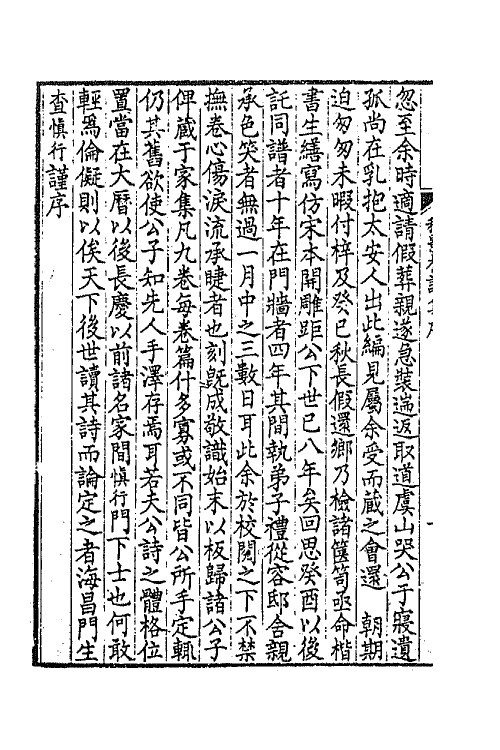 忽至余時適請假葬親遂急裝遄返取道虞山哭公于寢遺
孤尚在乳抱太安人出此編見屬余受而蔵之會還　朝期
迫匆匆未暇付梓及癸巳秋長假還鄉乃檢諸篋笥亟命楷
書生繕寫仿宋本開雕距公下世已八年矣回思癸酉以後
託同譜者十年在門牆者四年其間執弟子禮從容邸舍親
承色笑者無過一月中之三數日耳此余於校閱之下不禁
撫卷心傷淚流承睫者也刻旣成敬識始末以板歸諸公子
俾藏于家集凡九卷每卷篇什多寡或不同皆公所手定輒
仍其舊欲使公子知先人手澤存焉耳若夫公詩之體格位
置當在大曆以後長慶以前諸名家間慎行門下士也何敢
輕爲倫儗則以俟天下後世讀其詩而論定之者海昌門生
查慎行謹序